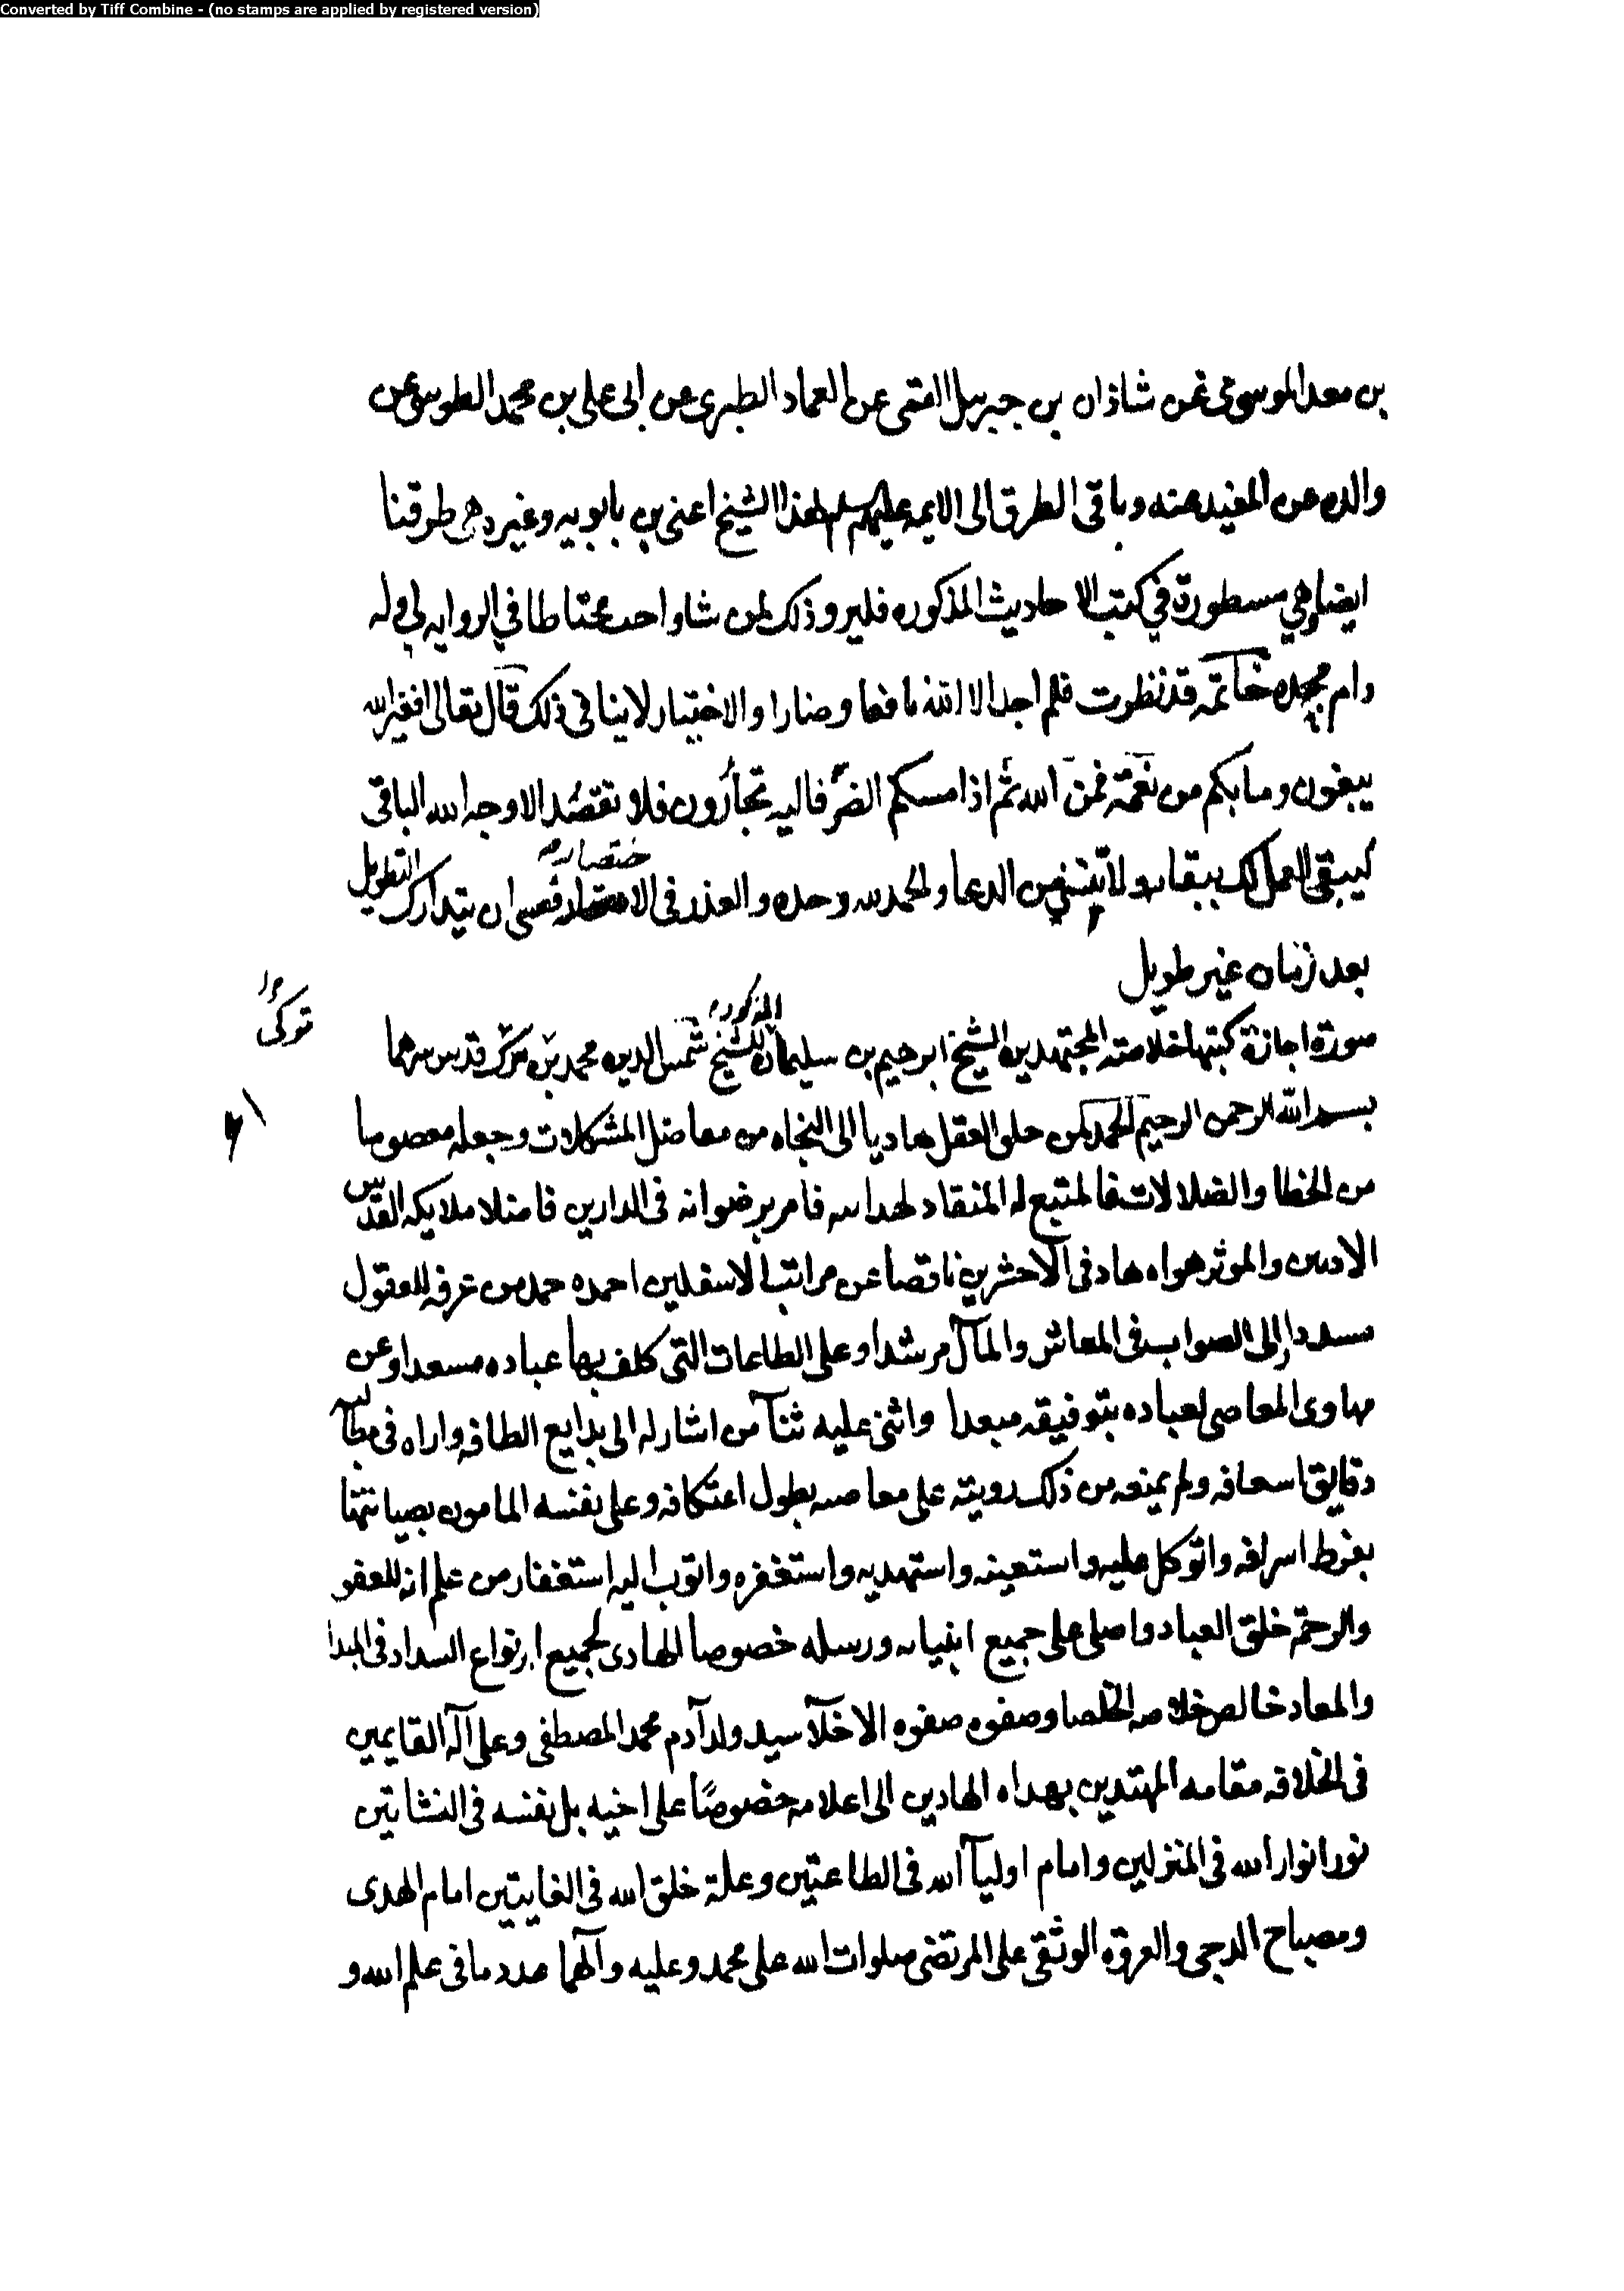 Converted by Tiff Combine - (no stamps are applied by registered version)
بن معد الموسوى عن شاذان بن جبرىىل القمى عن العماد الطبرى عن ابى على بن محمد الطوسى عن
والده عن المفيد عنه وباقى الطرق الى الايمه عليهم لهذا الشيخ اعنى بن بابويه وغيره هى طرقنا
ايضا وهي مسطورة في كتب الاحاديث المذكوره فلير و ذلك لمن شاو احب محتاطا في الروايه لى وله
دام مجده خاتمة قد نظرت فلم اجد الا الله نافعا وضارا والاختيار لا ينافى ذلك قال تعالى افغير الله
يبغون وما بكم من نعمة فمن الله ثم اذا مسكم الضر فاليه تجأرون فلا تقصد الا وجه الله الباقى
ليبقى العمل لك ببقاىه ولا تنسنى من الدعا والحمد لله وحده والعذر فى الاختصار فعسى ان يتدارك التطويل
بعد زمان غير طويل
صورة اجازة كتبها خلاصة المجتهدين الشيخ ابرهيم بن سليمان المذكور للشيخ شمس الدين محمد بن تركى قدس سرهما
تركى
بسم الله الرحمن الرحيم الحمد لمن خلق العقل هاديا الى النجاه من معاضل المشكلات وجعله معصوما
من الخطا والضلالات فالمتبع له المنقاد لهداىىه فامر برضوانه فى الدارين فاضلا ملايكه القدس
والموثر هواه هاد فى الاخسرين ناقصا عن مراتب الاسفلين احمده حمد من عرفه للعقول
مسددا الى الصواب فى المعاش والمآل مرشدا وعلى الطاعات التى كلف بها عباده مسعدا وعن
مهاوى المعاصى لعباده بتوفيقه مبعدا واثنى عليه ثنآ من اشار له الى بدايع الطافه واراه فى
دقايق اسعافه ولم يمنعه من ذلك رويته على معاصىه بطول اعتكافه وعلى نفسه المامون بصيانتها
بفرط اسرافه واتوكل عليه واستعينه واستهديه واستغفره واتوب اليه استغفار من علم انه للعفو
والرحمة خلق العباد واصلى على جميع انبياىه ورسله خصوصا الهادى لجميع انواع السداد فى المبدا
والمعاد خالص خلاصه الخلصا وصفوه صفوه الاخلآ سيد ولد آدم محمد المصطفى وعلى آله القايمين
فى الخلافه مقامه المهتدين بهداه الهادين الى اعلامه خصوصًا على اخيه بل نفسه فى النشاتين
نور انوار الله فى المنزلين وامام اوليآ الله فى الطاعتين وعلة خلق الله فى الغايتين امام الهدى
ومصباح الدجى والعروه الوثقى على المرتضى صلوات الله على محمد وعليه وآلهما عدد ما فى علم الله و